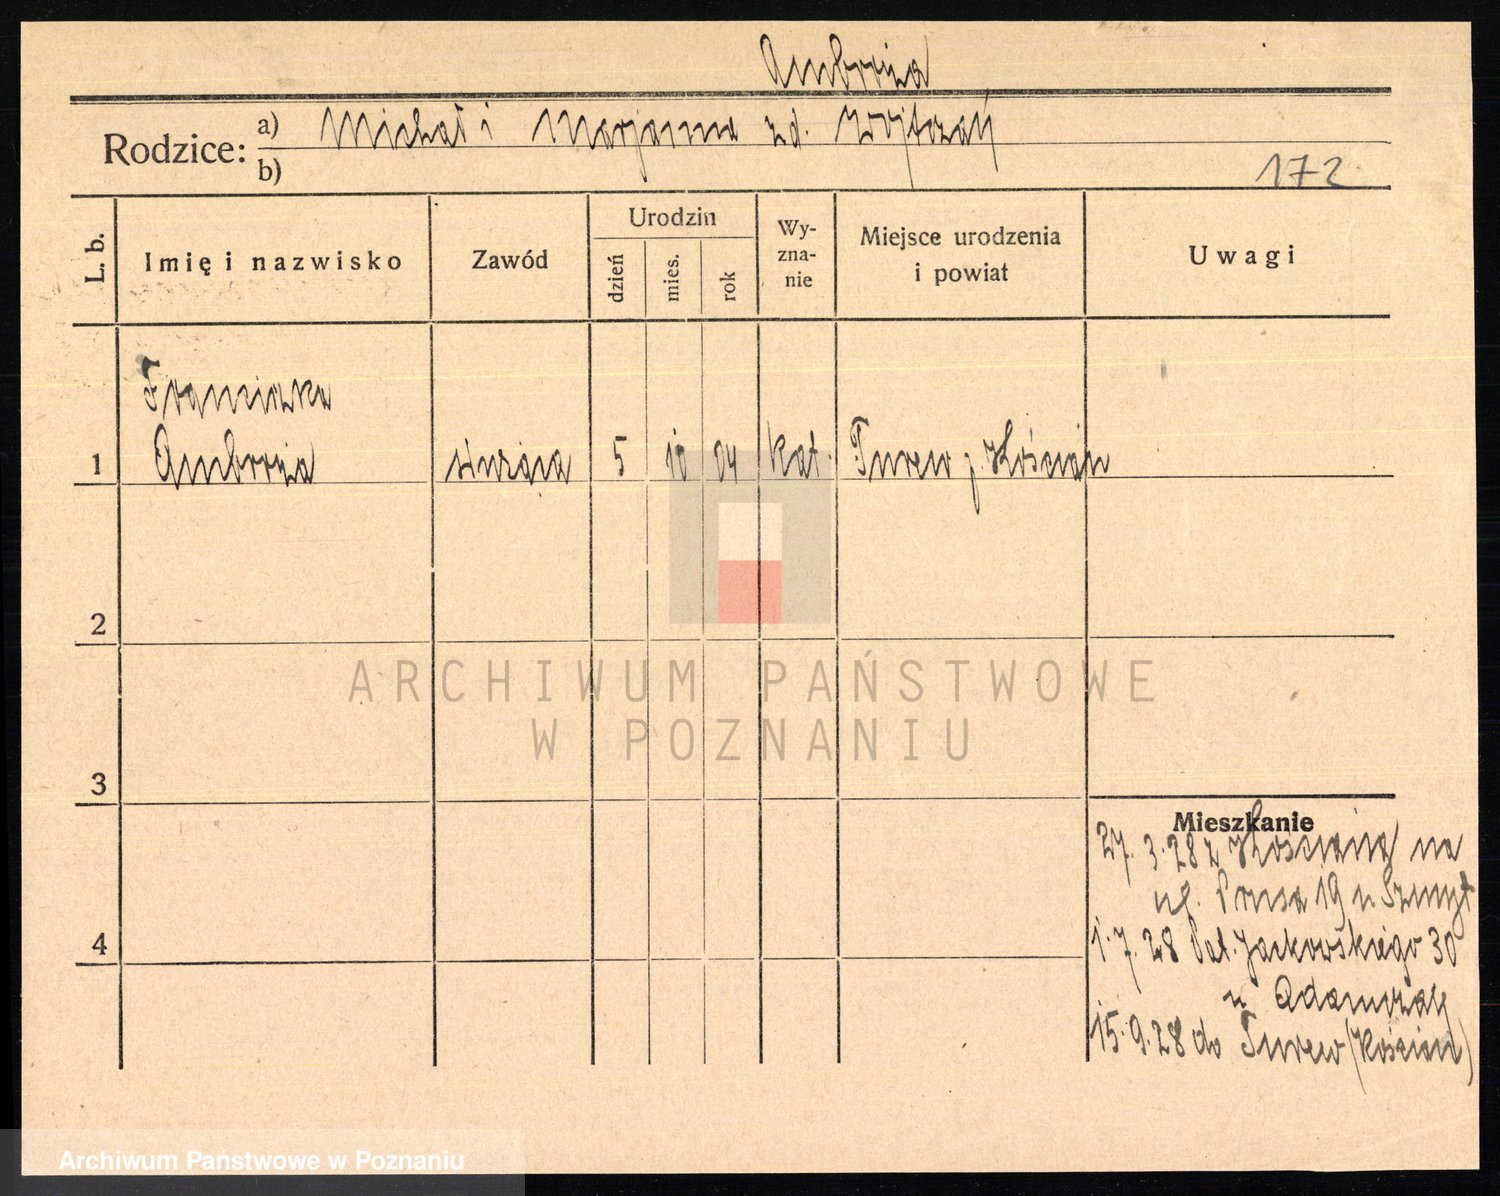 Ambroża
Rodzice: a) Michał i Marjanna zd. Wojtczak
b)
172
L. b.
Imię i nazwisko
Zawód
Urodzin
dzień
mies.
rok
Wy-
zna-
nie
Miejsce urodzenia
i powiat
Uwagi
Franciszka
1 Ambroża służąca 5 10 04 kat. Turew p. Kościan
2
3
4
Mieszkanie
27. 3. 28 z Kościana na
ul. Prusa 19 u Szmyt
1. 7. 28 Pat. Jackowskiego 30
u Adamczak
15. 9. 28 do Turew (Kościan)
ARCHIWUM PAŃSTWOWE
W POZNANIU
Archiwum Państwowe w Poznaniu